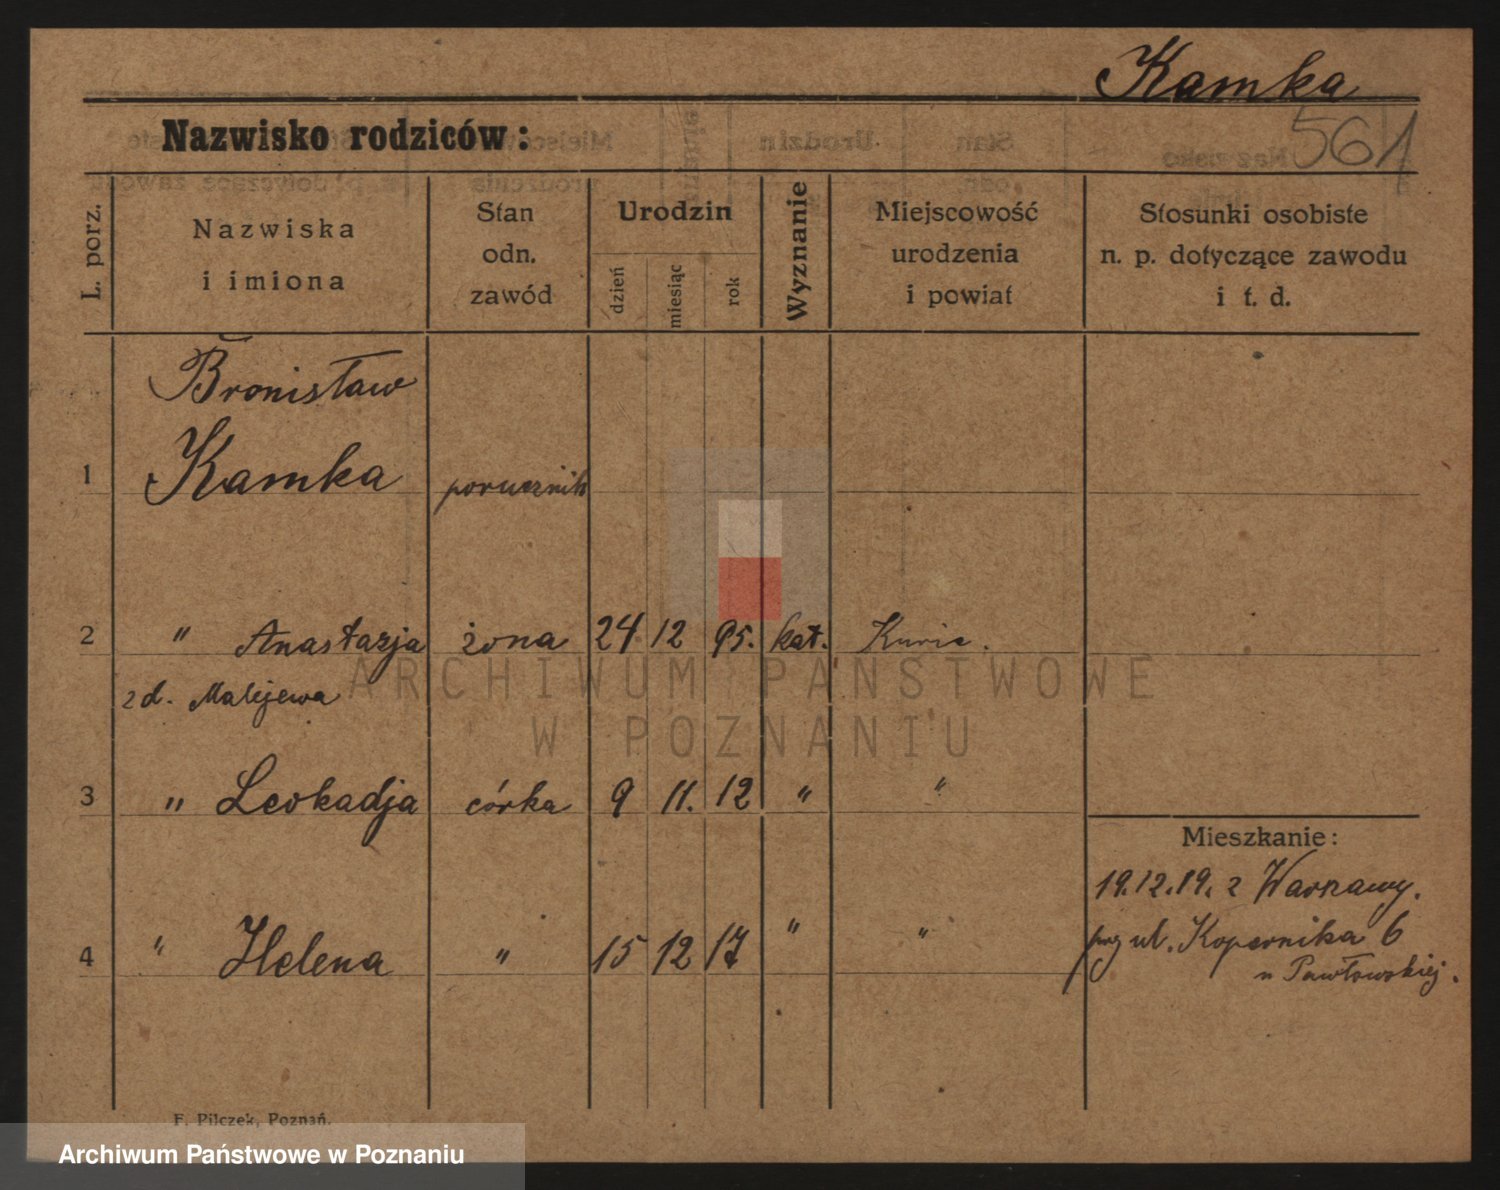 Kamka
561
Nazwisko rodziców:
L. porz.
Nazwiska
i imiona
Stan
odn.
zawód
Urodzin
dzień
miesiąc
rok
Wyznanie
Miejscowość
urodzenia
i powiat
Stosunki osobiste
n. p. dotyczące zawodu
i t. d.
Bronisław
1 Kamka porucznik
2 " Anastazja żona 24 12 95. kat.
z d. Malejewa
3 " Leokadja córka 9 11. 12 " "
Mieszkanie:
19.12.19. z Warszawy.
ul. Kopernika 6
4 " Helena " 15 12 17 " "
u Pawłowskiej.
F. Pilczek, Poznań.
ARCHIWUM PAŃSTWOWE
W POZNANIU
Archiwum Państwowe w Poznaniu